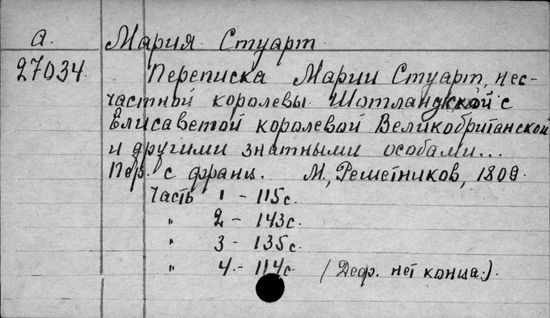 а. Мария Стуарт
27034. Переписка Марии Стуарт, нес-
частной королевы Шотландской с
Елисаветой королевой Великобританской
и другими знатными особами...
Пер. с франц. М., Решетников, 1809
Часть 1 - 115с.
" 2 - 143с.
" 3 - 135с.
" 4. - 114с. (Деф. нет конца.)